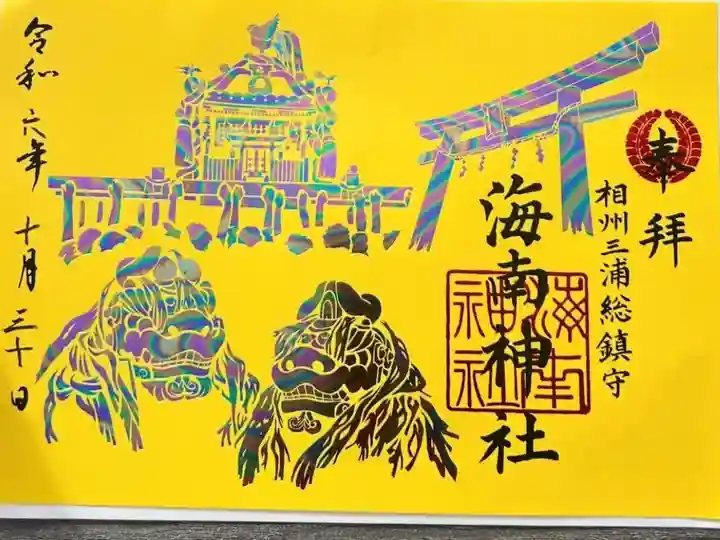 奉拝
相州三浦総鎮守
海南神社
令和六年十月三十日